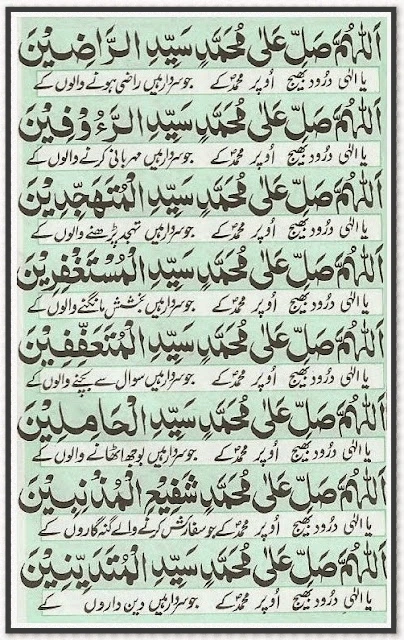 اَللّٰهُمَّ صَلِّ عَلٰى مُحَمَّدٍ سَيِّدِ الرَّاضِيْنَ
يا الٰہی درُود بھیج اُوپر محمدؐ کے جو سردار ہیں راضی ہونے والوں کے
اَللّٰهُمَّ صَلِّ عَلٰى مُحَمَّدٍ سَيِّدِ الرَّءُوْفِيْنَ
يا الٰہی درُود بھیج اُوپر محمدؐ کے جو سردار ہیں مہربانی کرنے والوں کے
اَللّٰهُمَّ صَلِّ عَلٰى مُحَمَّدٍ سَيِّدِ الْمُتَهَجِّدِيْنَ
يا الٰہی درُود بھیج اُوپر محمدؐ کے جو سردار ہیں تہجد پڑھنے والوں کے
اَللّٰهُمَّ صَلِّ عَلٰى مُحَمَّدٍ سَيِّدِ الْمُسْتَغْفِرِيْنَ
يا الٰہی درُود بھیج اُوپر محمدؐ کے جو سردار ہیں بخشش مانگنے والوں کے
اَللّٰهُمَّ صَلِّ عَلٰى مُحَمَّدٍ سَيِّدِ الْمُتَعَفِّفِيْنَ
يا الٰہی درُود بھیج اُوپر محمدؐ کے جو سردار ہیں سوال سے بچنے والوں کے
اَللّٰهُمَّ صَلِّ عَلٰى مُحَمَّدٍ سَيِّدِ الْحَامِلِيْنَ
يا الٰہی درُود بھیج اُوپر محمدؐ کے جو سردار ہیں بوجھ اٹھانے والوں کے
اَللّٰهُمَّ صَلِّ عَلٰى مُحَمَّدٍ شَفِيْعِ الْمُذْنِبِيْنَ
يا الٰہی درُود بھیج اُوپر محمدؐ کے جو سفارش کرنے والے گنہگاروں کے
اَللّٰهُمَّ صَلِّ عَلٰى مُحَمَّدٍ سَيِّدِ الْمُتَدَيِّنِيْنَ
يا الٰہی درُود بھیج اُوپر محمدؐ کے جو سردار ہیں دین داروں کے